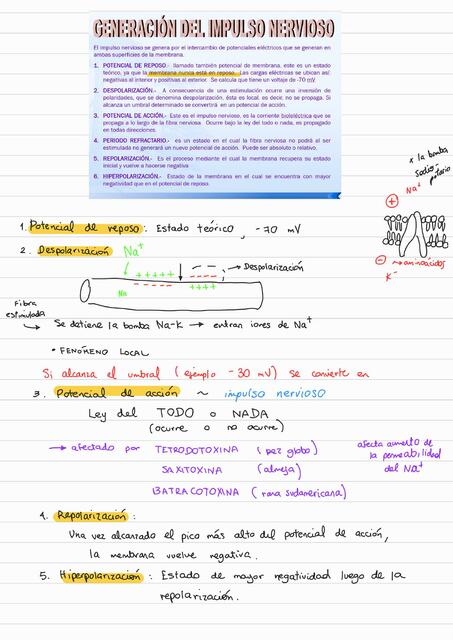 GENERACIÓN DEL IMPULSO NERVIOSO
El impulso nervioso se genera por el intercambio de potenciales eléctricos que se generan en
ambas superficies de la membrana.
1. POTENCIAL DE REPOSO.- llamado también potencial de membrana, este es un estado
teórico, ya que la membrana nunca está en reposo. Las cargas eléctricas se ubican así:
negativas al interior y positivas al exterior. Se calcula que tiene un voltaje de -70 mV
2. DESPOLARIZACIÓN.- A consecuencia de una estimulación ocurre una inversión de
polaridades, que se denomina despolarización, ésta es local, es decir, no se propaga. Si
alcanza un umbral determinado se convertirá en un potencial de acción.
3. POTENCIAL DE ACCIÓN.- Este es el impulso nervioso, es la corriente bioeléctrica que se
propaga a lo largo de la fibra nerviosa. Ocurre bajo la ley del todo o nada, es propagado
en todas direcciones.
4. PERIODO REFRACTARIO.- es un estado en el cual la fibra nerviosa no podrá al ser
estimulada no generará un nuevo potencial de acción. Puede ser absoluto o relativo.
5. REPOLARIZACIÓN.- Es el proceso mediante el cual la membrana recupera su estado
inicial y vuelve a hacerse negativa
6. HIPERPOLARIZACIÓN.- Estado de la membrana en el cual se encuentra con mayor
negatividad que en el potencial de reposo.
x la bomba
sodio-
potasio
+ Na+
- → aminoácidos
K-
1. Potencial de reposo: Estado teórico, -70 mV
2. Despolarización Na+
+ + + + + - - - - - → Despolarización
Na - - - - - + + + +
Fibra
estimulada
→ Se detiene la bomba Na-K → entran iones de Na+
• FENÓMENO LOCAL
Si alcanza el umbral (ejemplo -30 mV) se convierte en
3. Potencial de acción ~ impulso nervioso
Ley del TODO o NADA
(ocurre o no ocurre)
→ afectado por TETRODOTOXINA (pez globo)
SAXITOXINA (almeja)
BATRACOTOXINA (rana sudamericana)
afecta aumento de
la permeabilidad
del Na+
4. Repolarización:
Una vez alcanzado el pico más alto del potencial de acción,
la membrana vuelve negativa.
5. Hiperpolarización: Estado de mayor negatividad luego de la
repolarización.